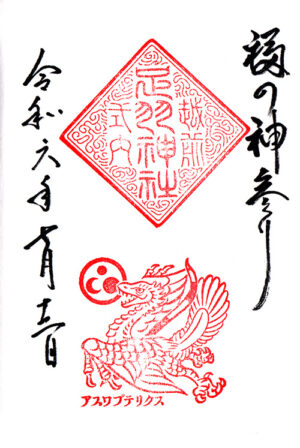 福の神参り
越前
足羽神社
式内
令和六年七月
アスワプテリクス